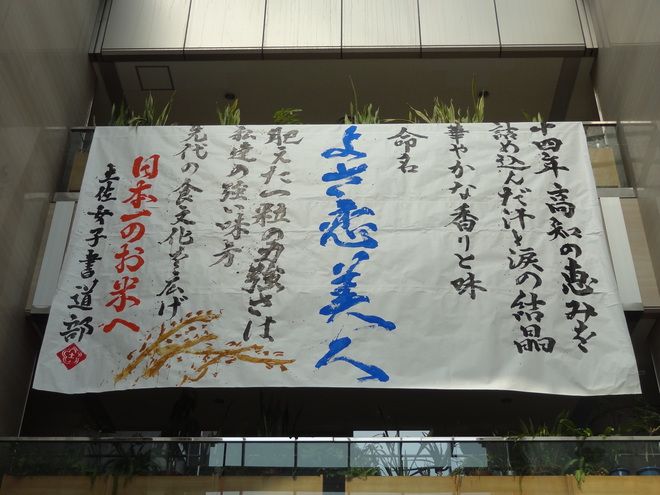 十四年 高知の恵みを
詰め込んだ汗と涙の結晶
華やかな香りと味
命名
よさ恋美人
肥えた一粒の力強さは
私達の強い味方
先代の食文化を広げ
日本一のお米へ
土佐女子書道部